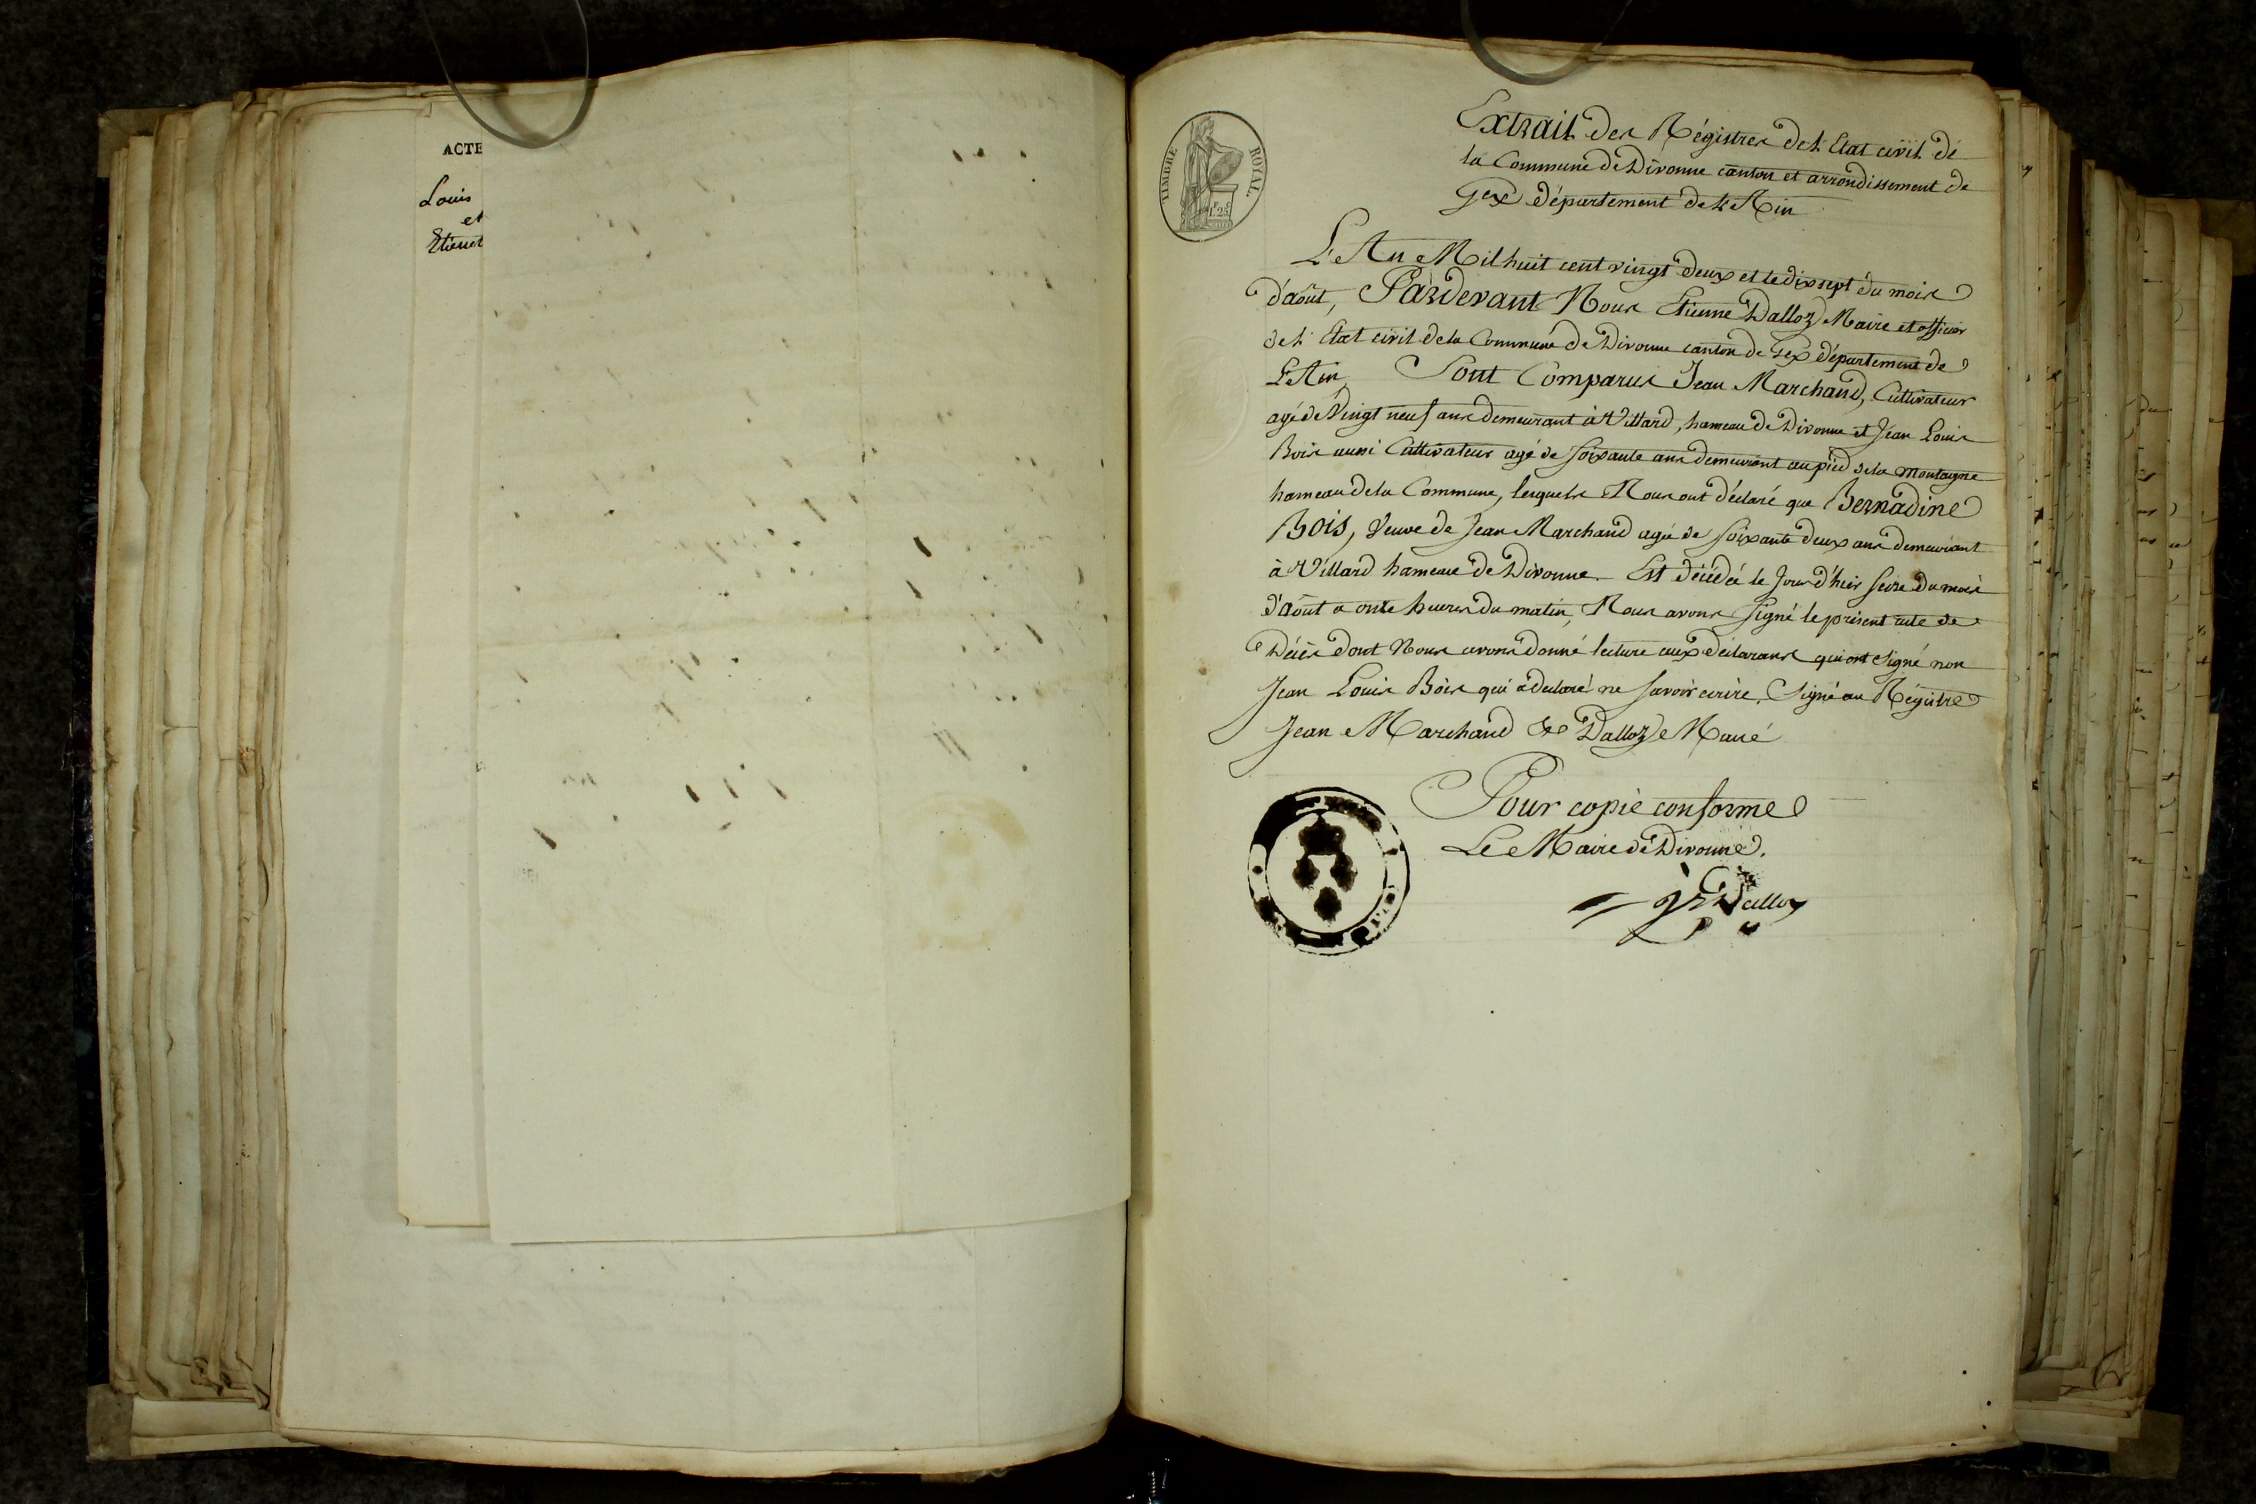 ACTE
Louis
et
TIMBRE ROYAL
1F.25c
Extrait des Régistres de L'Etat civil de
la Commune de Divonne canton et arrondissement de
Gex département de L'Ain
L'An Mil huit cent vingt deux et le dix sept du mois
d'août, Pardevant Nous Etienne Dalloz Maire et officier
de L'Etat civil de la Commune de Divonne canton de Gex département de
L'Ain, Sont Comparus Jean Marchand, Cultivateur
agé de Vingt neuf ans demeurant à Villard, hameau de Divonne et Jean Louis
Bois aussi Cultivateur agé de soixante ans demeurant au pied de la montagne
hameau de la Commune, lesquels Nous ont déclaré que Bernadine
Bois, Veuve de Jean Marchand agée de soixante deux ans demeurant
à Villard hameau de Divonne. Est décédée le jour d'hier seize du mois
d'août a onze heures du matin, Nous avons signé le présent acte de
Décès dont Nous avons donné lecture aux déclarans qui ont signé non
Jean Louis Bois qui a déclaré ne savoir écrire. Signé au Régistre
Jean Marchand & Dalloz Maire
Pour copie conforme
Le Maire de Divonne.
Dalloz